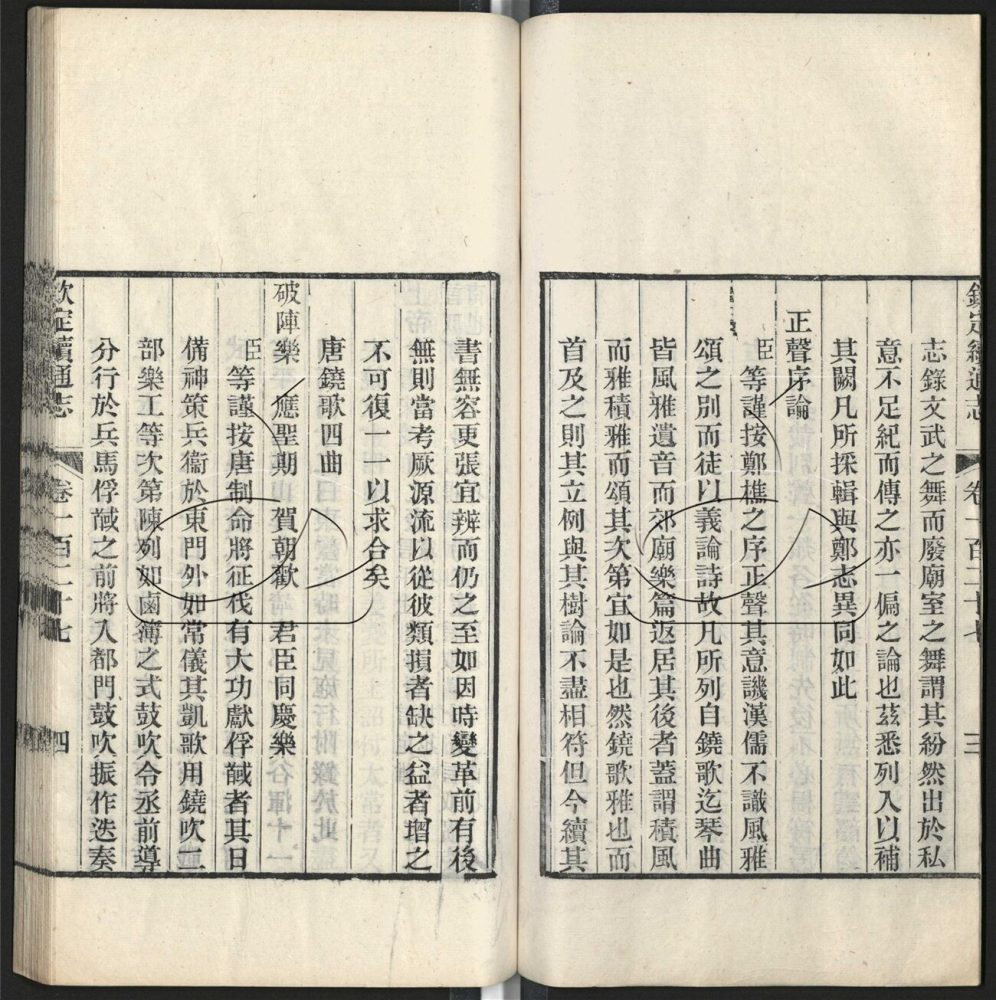 欽定續通志
卷一百二十七
三
志錄文武之舞而廢廟室之舞謂其紛然出於私
意不足紀而傳之亦一偏之論也茲悉列入以補
其闕凡所採輯與鄭志異同如此
正聲序論
臣等謹按鄭樵之序正聲其意譏漢儒不識風雅
頌之別而徒以義論詩故凡所列自鐃歌迄琴曲
皆風雅遺音而郊廟樂篇返居其後者蓋謂積風
而雅積雅而頌其次第宜如是也然鐃歌雅也而
首及之則其立例與其樹論不盡相符但今續其
書無容更張宜辨而仍之至如因時變革前有後
無則當考厥源流以從彼類損者缺之益者增之
不可復一一以求合矣
唐鐃歌四曲
破陣樂 應聖期 賀朝歡 君臣同慶樂
臣等謹按唐制命將征伐有大功獻俘馘者其日
備神策兵衞於東門外如常儀其凱歌用鐃吹二
部樂工等次第陳列如鹵簿之式鼓吹令丞前導
分行於兵馬俘馘之前將入都門鼓吹振作迭奏
欽定續通志
卷一百二十七
四